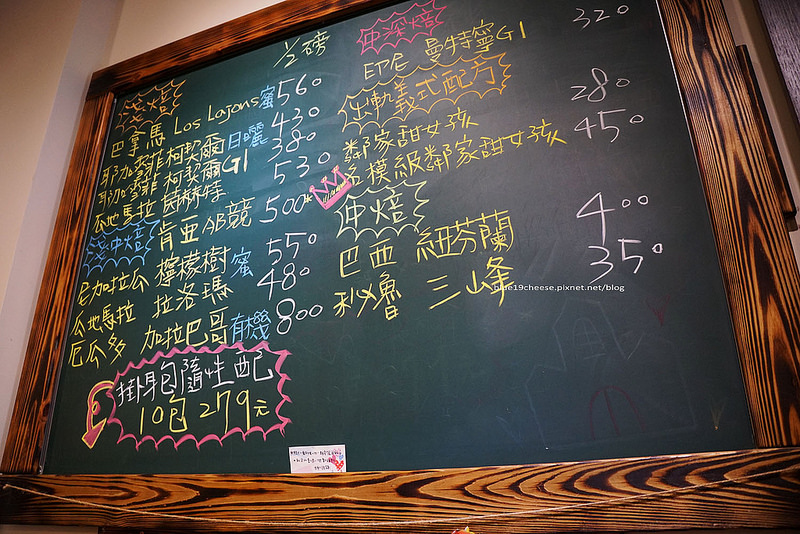 1/2磅
淺焙
巴拿馬 Los Lajons蜜 560
耶加雪菲 柯契爾日曬 430
耶加雪菲 柯契爾G1 380
瓜地馬拉 茵赫特 530
淺中焙
肯亞 AB競 500
尼加拉瓜 檸檬樹 蜜 550
瓜地馬拉 拉洛瑪 480
厄瓜多 加拉巴哥有機 800
掛耳包隨性配
10包 279元
中深焙
EPE 曼特寧G1 320
出軌義式配方
鄰家甜女孩 280
名模級鄰家甜女孩 450
中焙
巴西 紐芬蘭 400
秘魯 三峰 350
blue19cheese.pixnet.net/blog